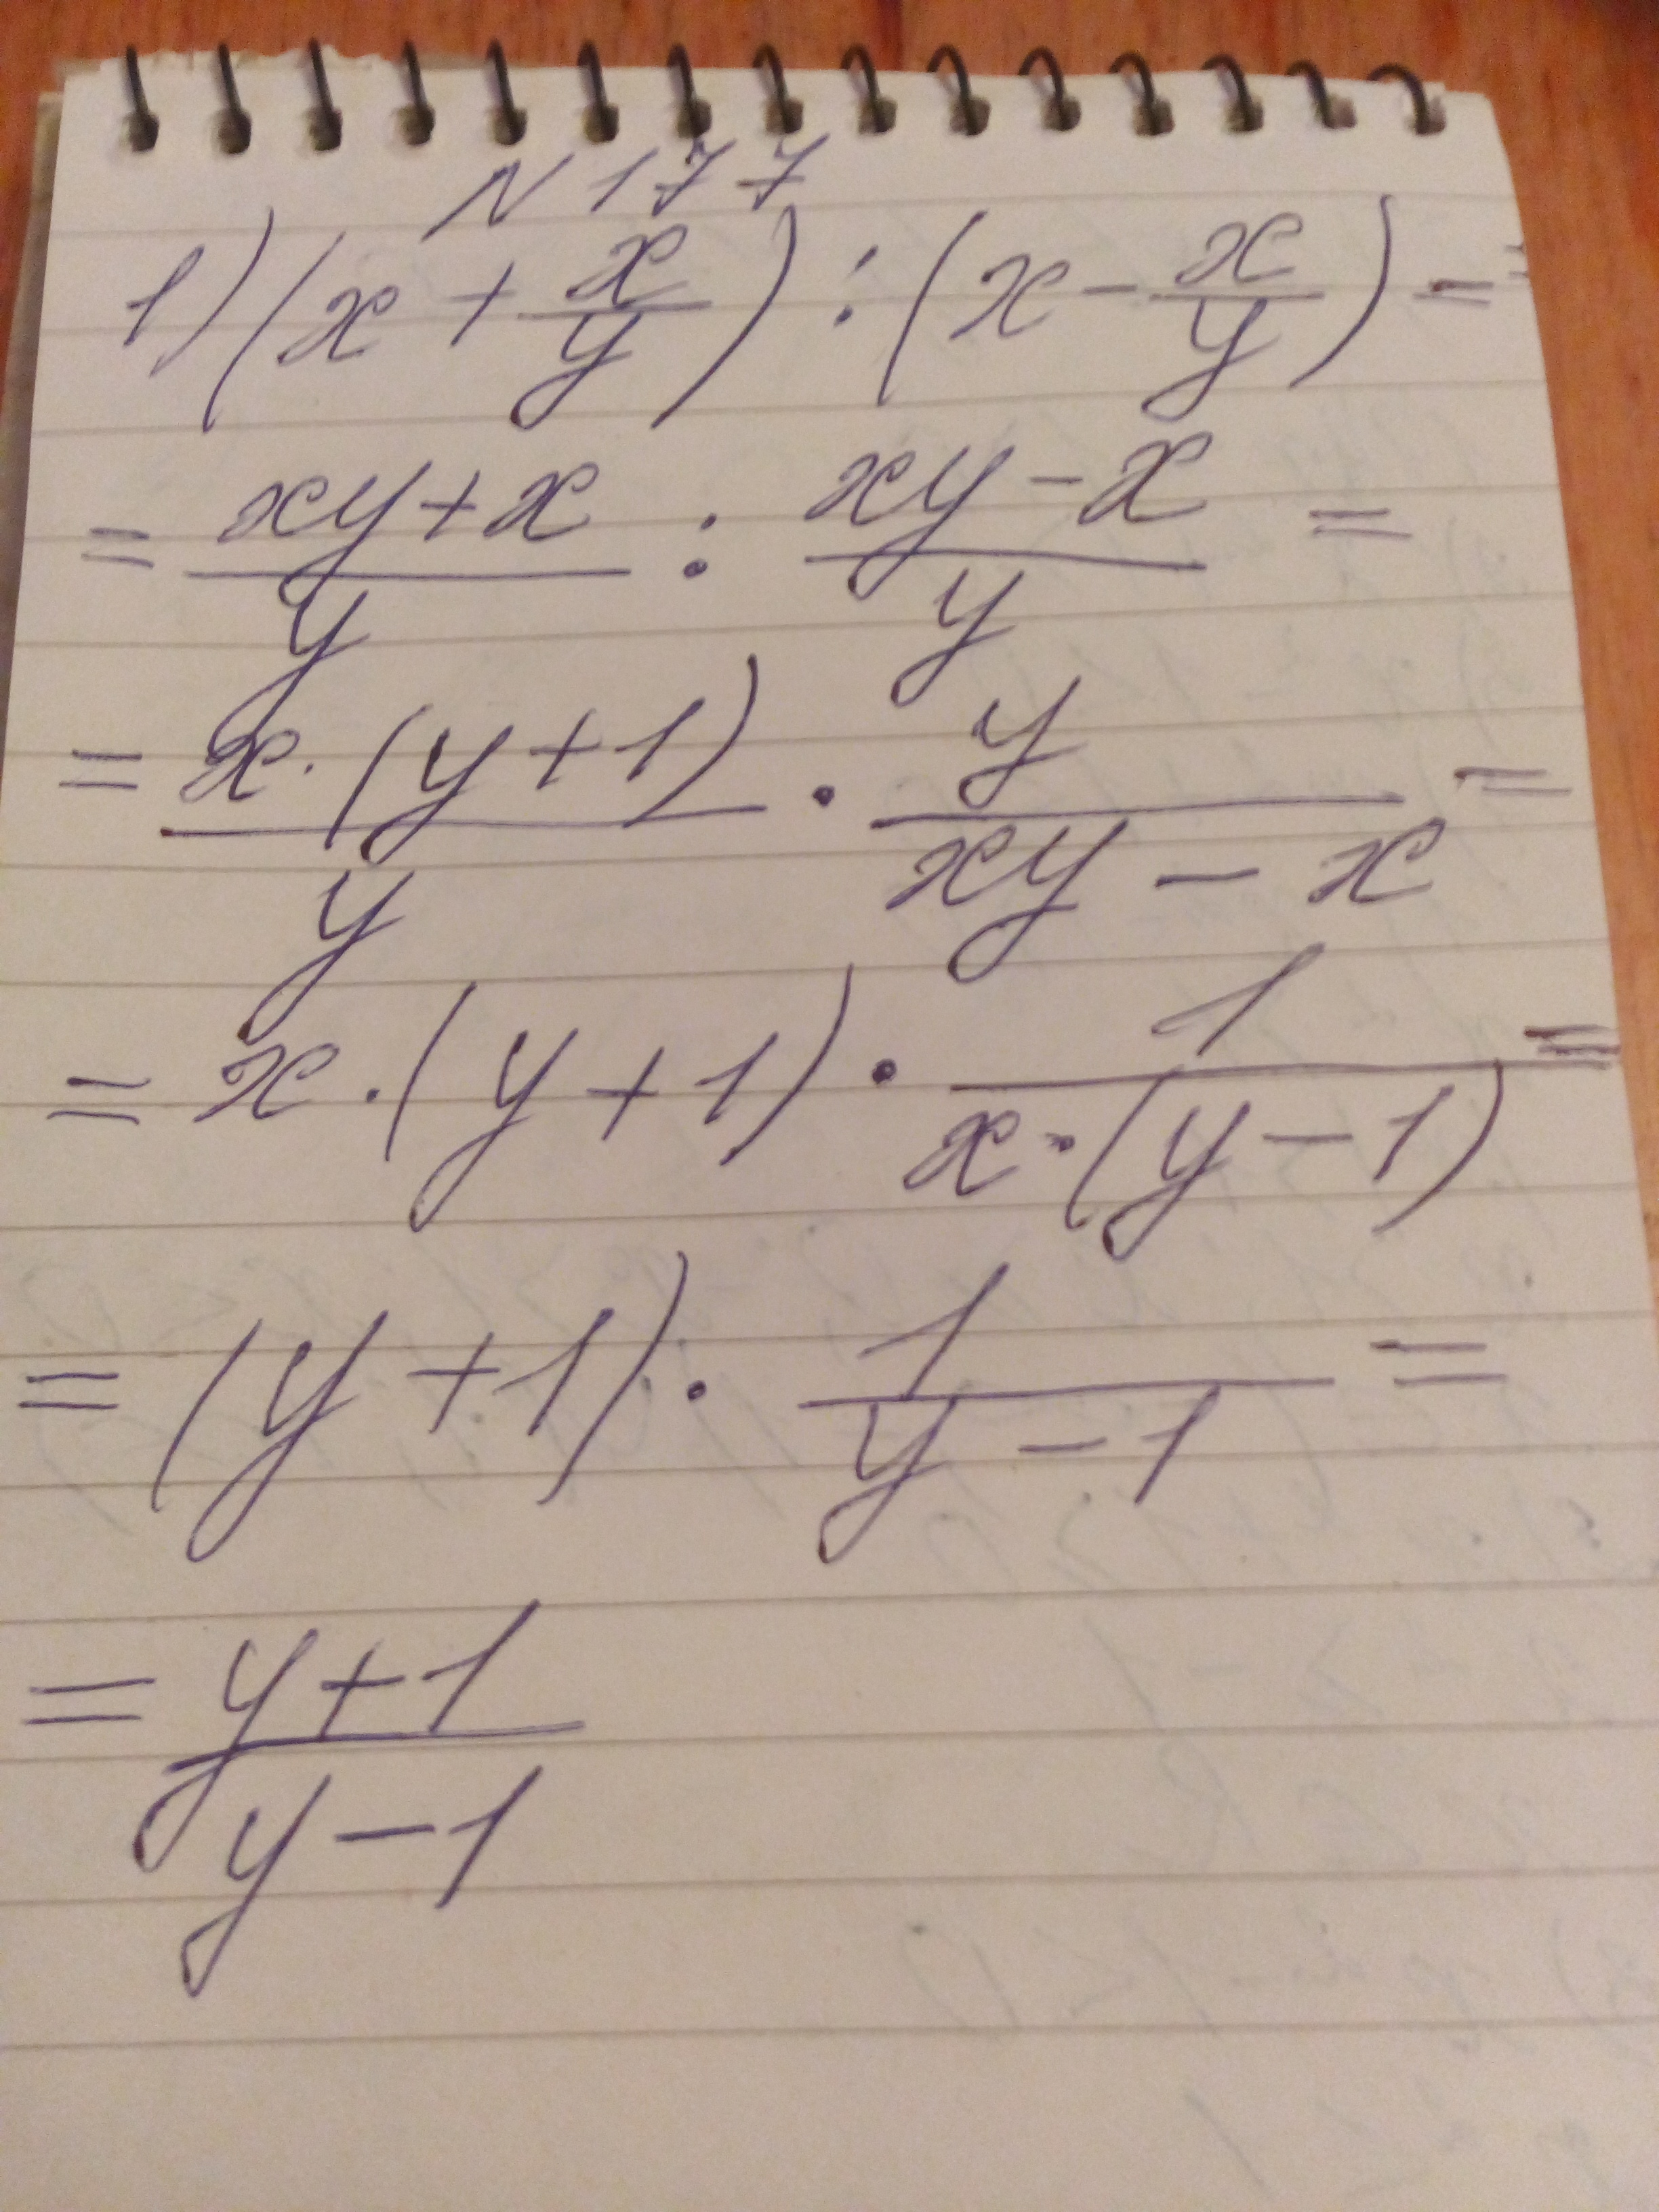 N 177
1) (x + x/y) : (x - x/y) =
= (xy + x)/y : (xy - x)/y =
= x · (y + 1)/y · y/(xy - x) =
= x · (y + 1) · 1/(x · (y - 1)) =
= (y + 1) · 1/(y - 1) =
= (y + 1)/(y - 1)